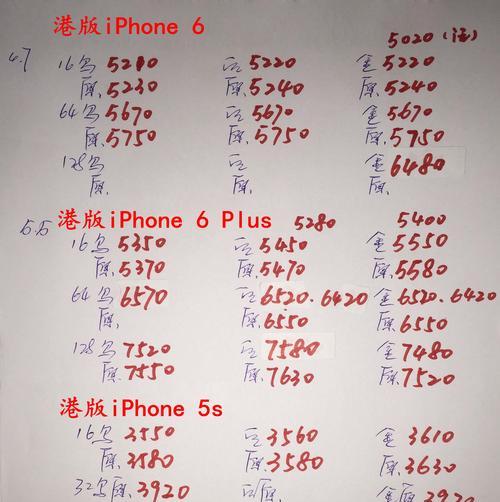 港版iPhone 6
5020(注)
4.7 16乌 5210 白 5220 金 5220
原 5230 原 5240 原 5240
64乌 5670 白 5670 金 5670
原 5750 原 5750 原 5750
128乌 白 金 6480
原 原 原
5.5 港版iPhone 6 Plus 5280 5400
16乌 5350 白 5450 金 5550
原 5370 原 5470 原 5580
64乌 6570 白 6520.6420 金 6520.6420
原 原 6550 原 6550
128乌 7520 白 7580 金 7480
原 7550 原 7630 原 7520
港版iPhone 5s
16乌 3550 白 3560 金 3610
原 3580 原 3580 原 3630
32乌原 3920 白原 金原 3920